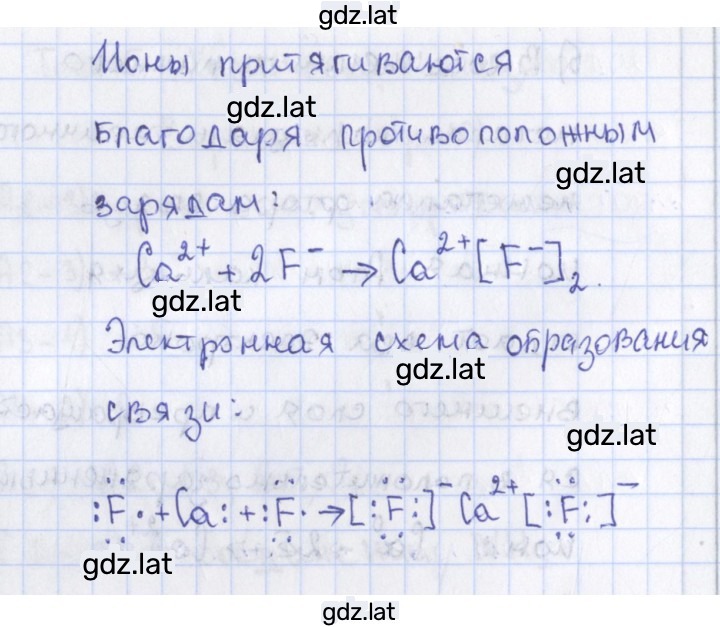 gdz.lat
Ионы притягиваются
gdz.lat
благодаря противоположным
gdz.lat
зарядам:
Ca²⁺ + 2F⁻ → Ca²⁺[F⁻]₂.
gdz.lat
Электронная схема образования
gdz.lat
связи:
gdz.lat
:F̤̈· + Ca: + :F̤̈· → [:F̤̈:]⁻ Ca²⁺ [:F̤̈:]⁻
gdz.lat
gdz.lat